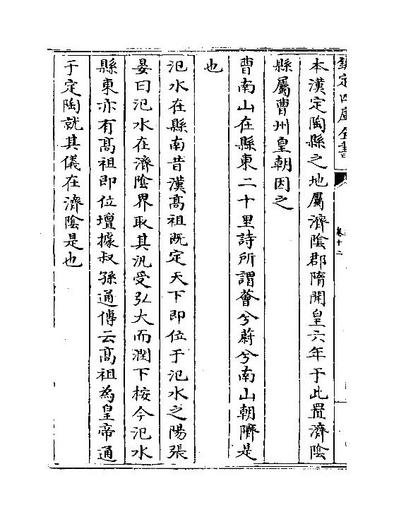 欽定四庫全書
卷十二
本漢定陶縣之地屬濟陰郡隋開皇六年于此置濟陰
縣屬曹州皇朝因之
曹南山在縣東二十里詩所謂薈兮蔚兮南山朝隮是
也
氾水在縣南昔漢髙祖既定天下即位于氾水之陽張
晏曰氾水在濟隂界取其汎受弘大而潤下按今氾水
縣東亦有髙祖即位壇據叔孫通傳云髙祖為皇帝通
于定陶就其儀在濟隂是也